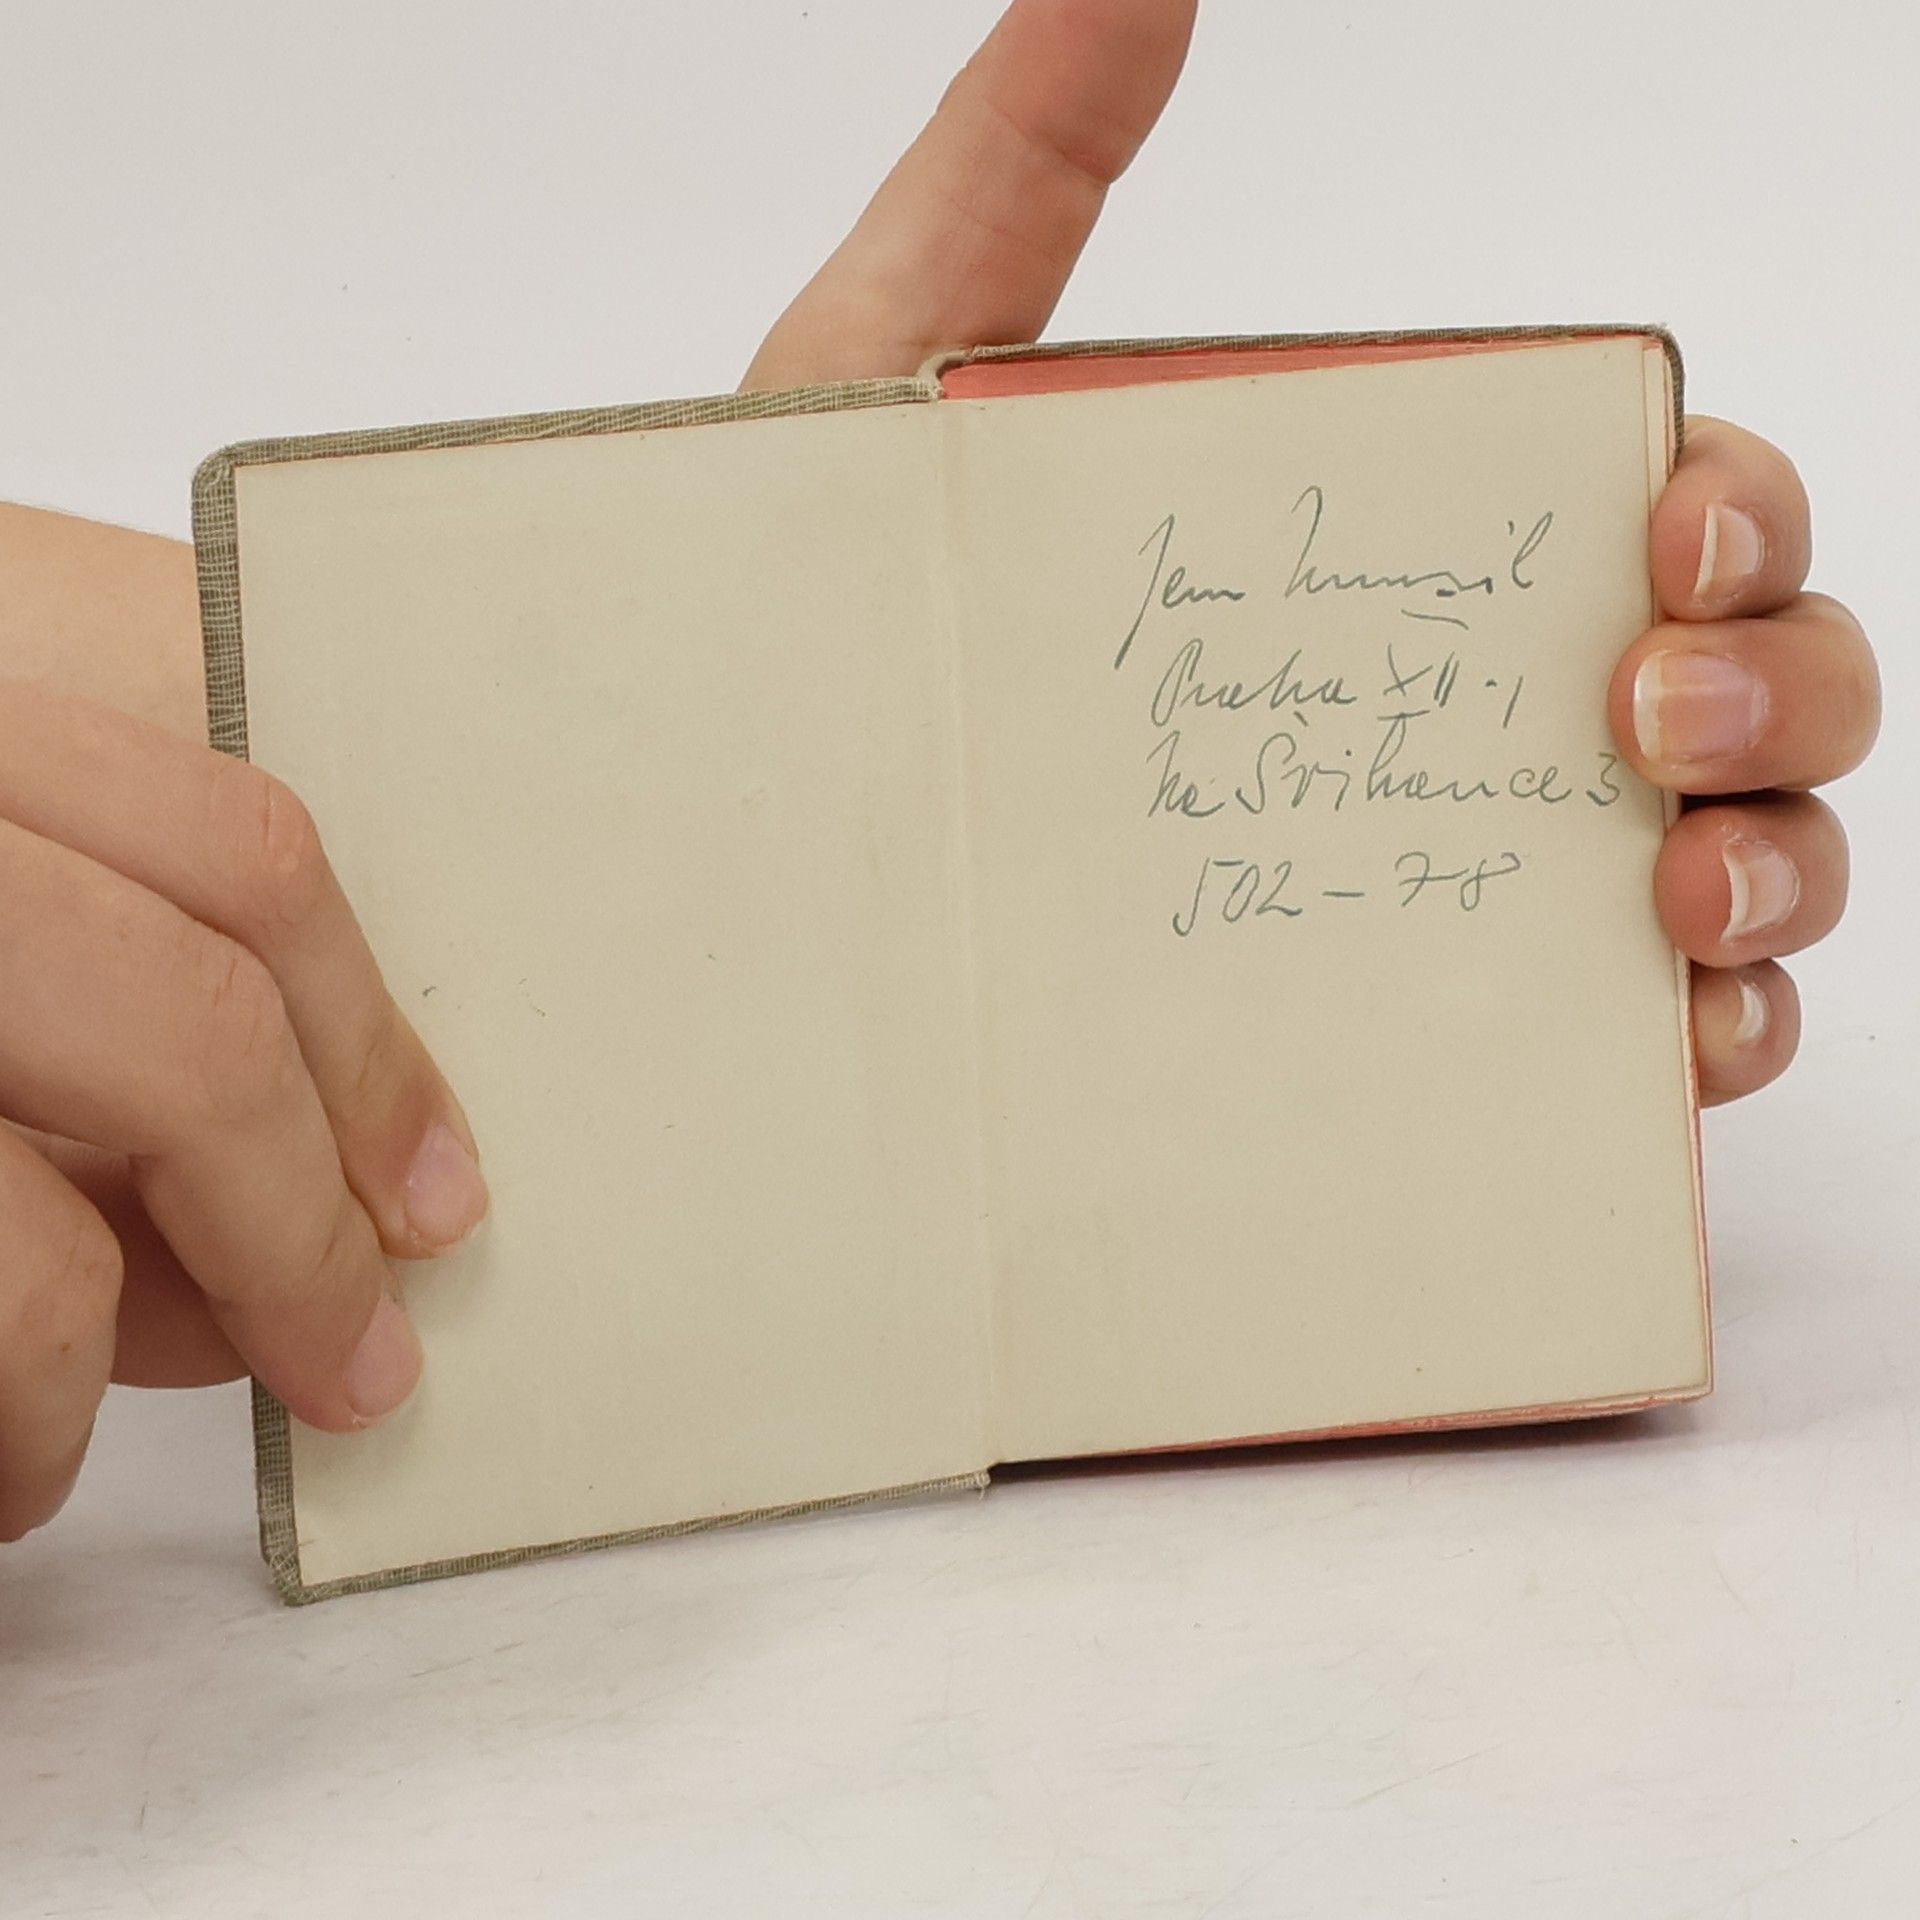 Jan Musil
Praha XII-1
Na Švihance 3
502-78